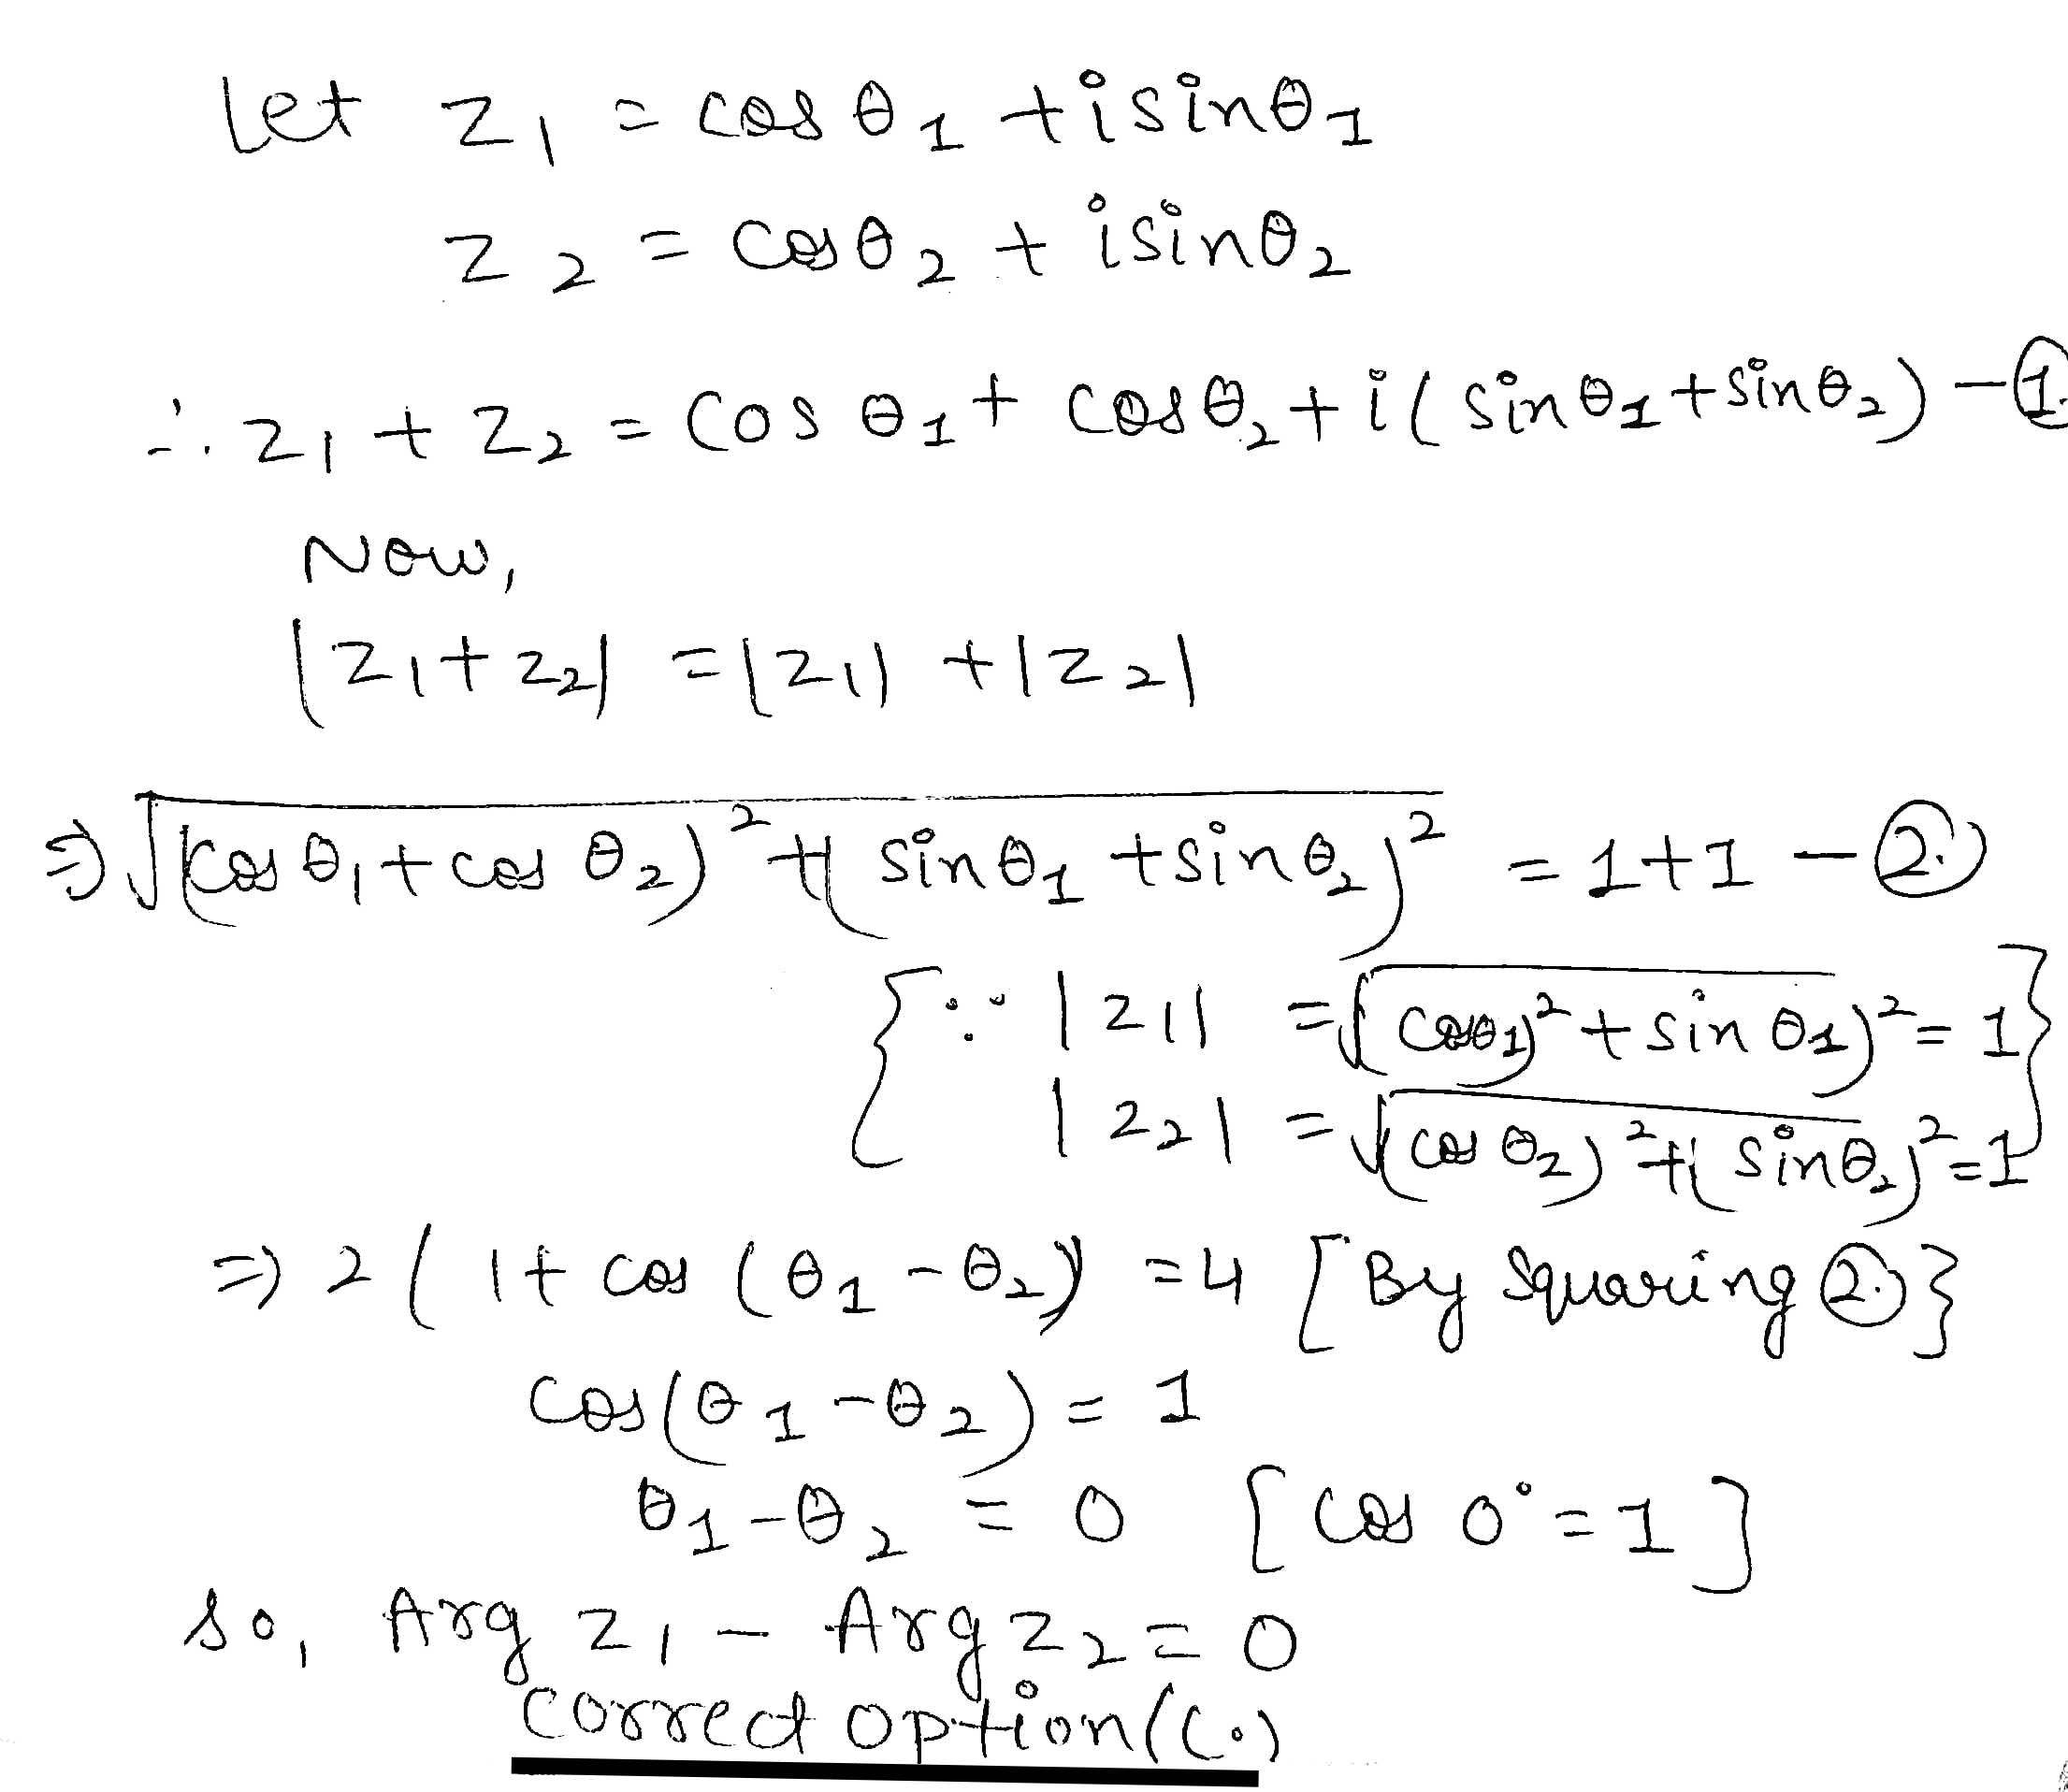 Let z₁ = cos θ₁ + i sin θ₁
z₂ = cos θ₂ + i sin θ₂
∴ z₁ + z₂ = cos θ₁ + cos θ₂ + i( sin θ₁ + sin θ₂) - ①.
Now,
|z₁ + z₂| = |z₁| + |z₂|
⇒ √(cos θ₁ + cos θ₂)² + (sin θ₁ + sin θ₂)² = 1+1 - ②.
{∵ |z₁| = √cos θ₁)² + sin θ₁)² = 1}
|z₂| = √(cos θ₂)² + (sin θ₂)² = 1
⇒ 2 ( 1 + cos (θ₁ - θ₂) = 4 [By Squaring ②.}
cos(θ₁ - θ₂) = 1
θ₁ - θ₂ = 0 [cos 0° = 1]
so, Arg z₁ - Arg z₂ = 0
correct option (C.)